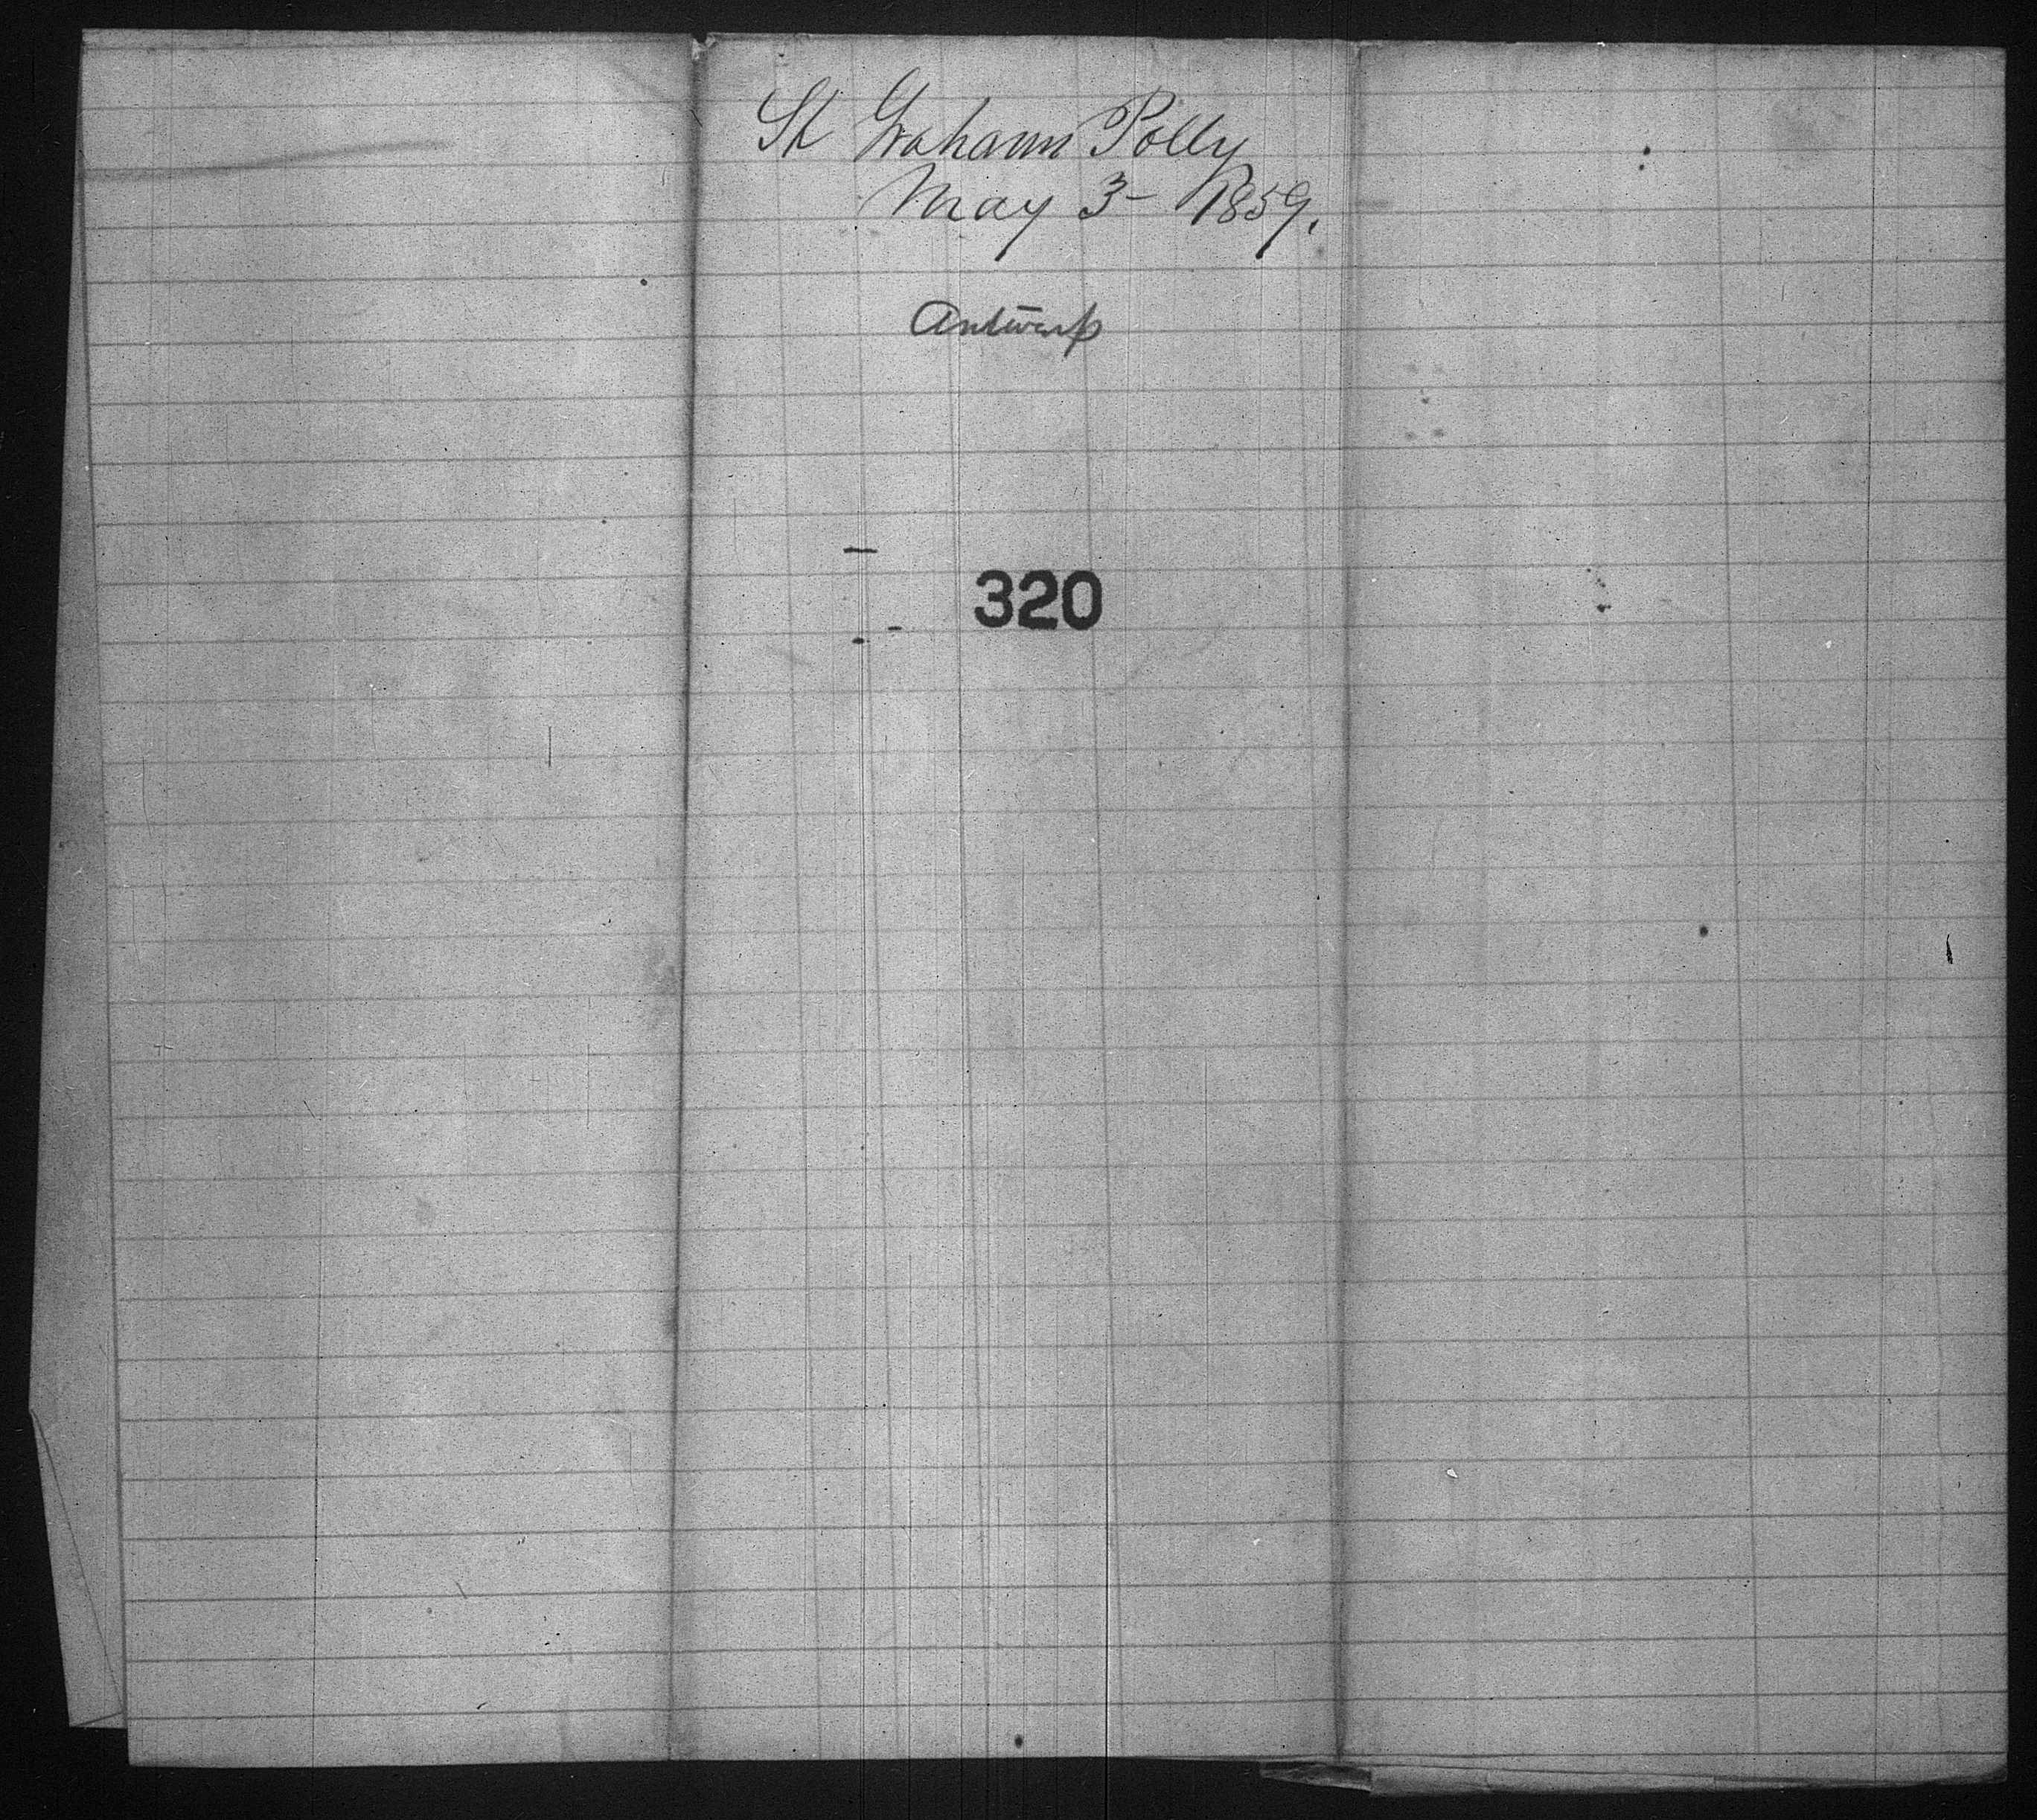 St Grahams Polly
May 3- 1859.
Antwerp
320